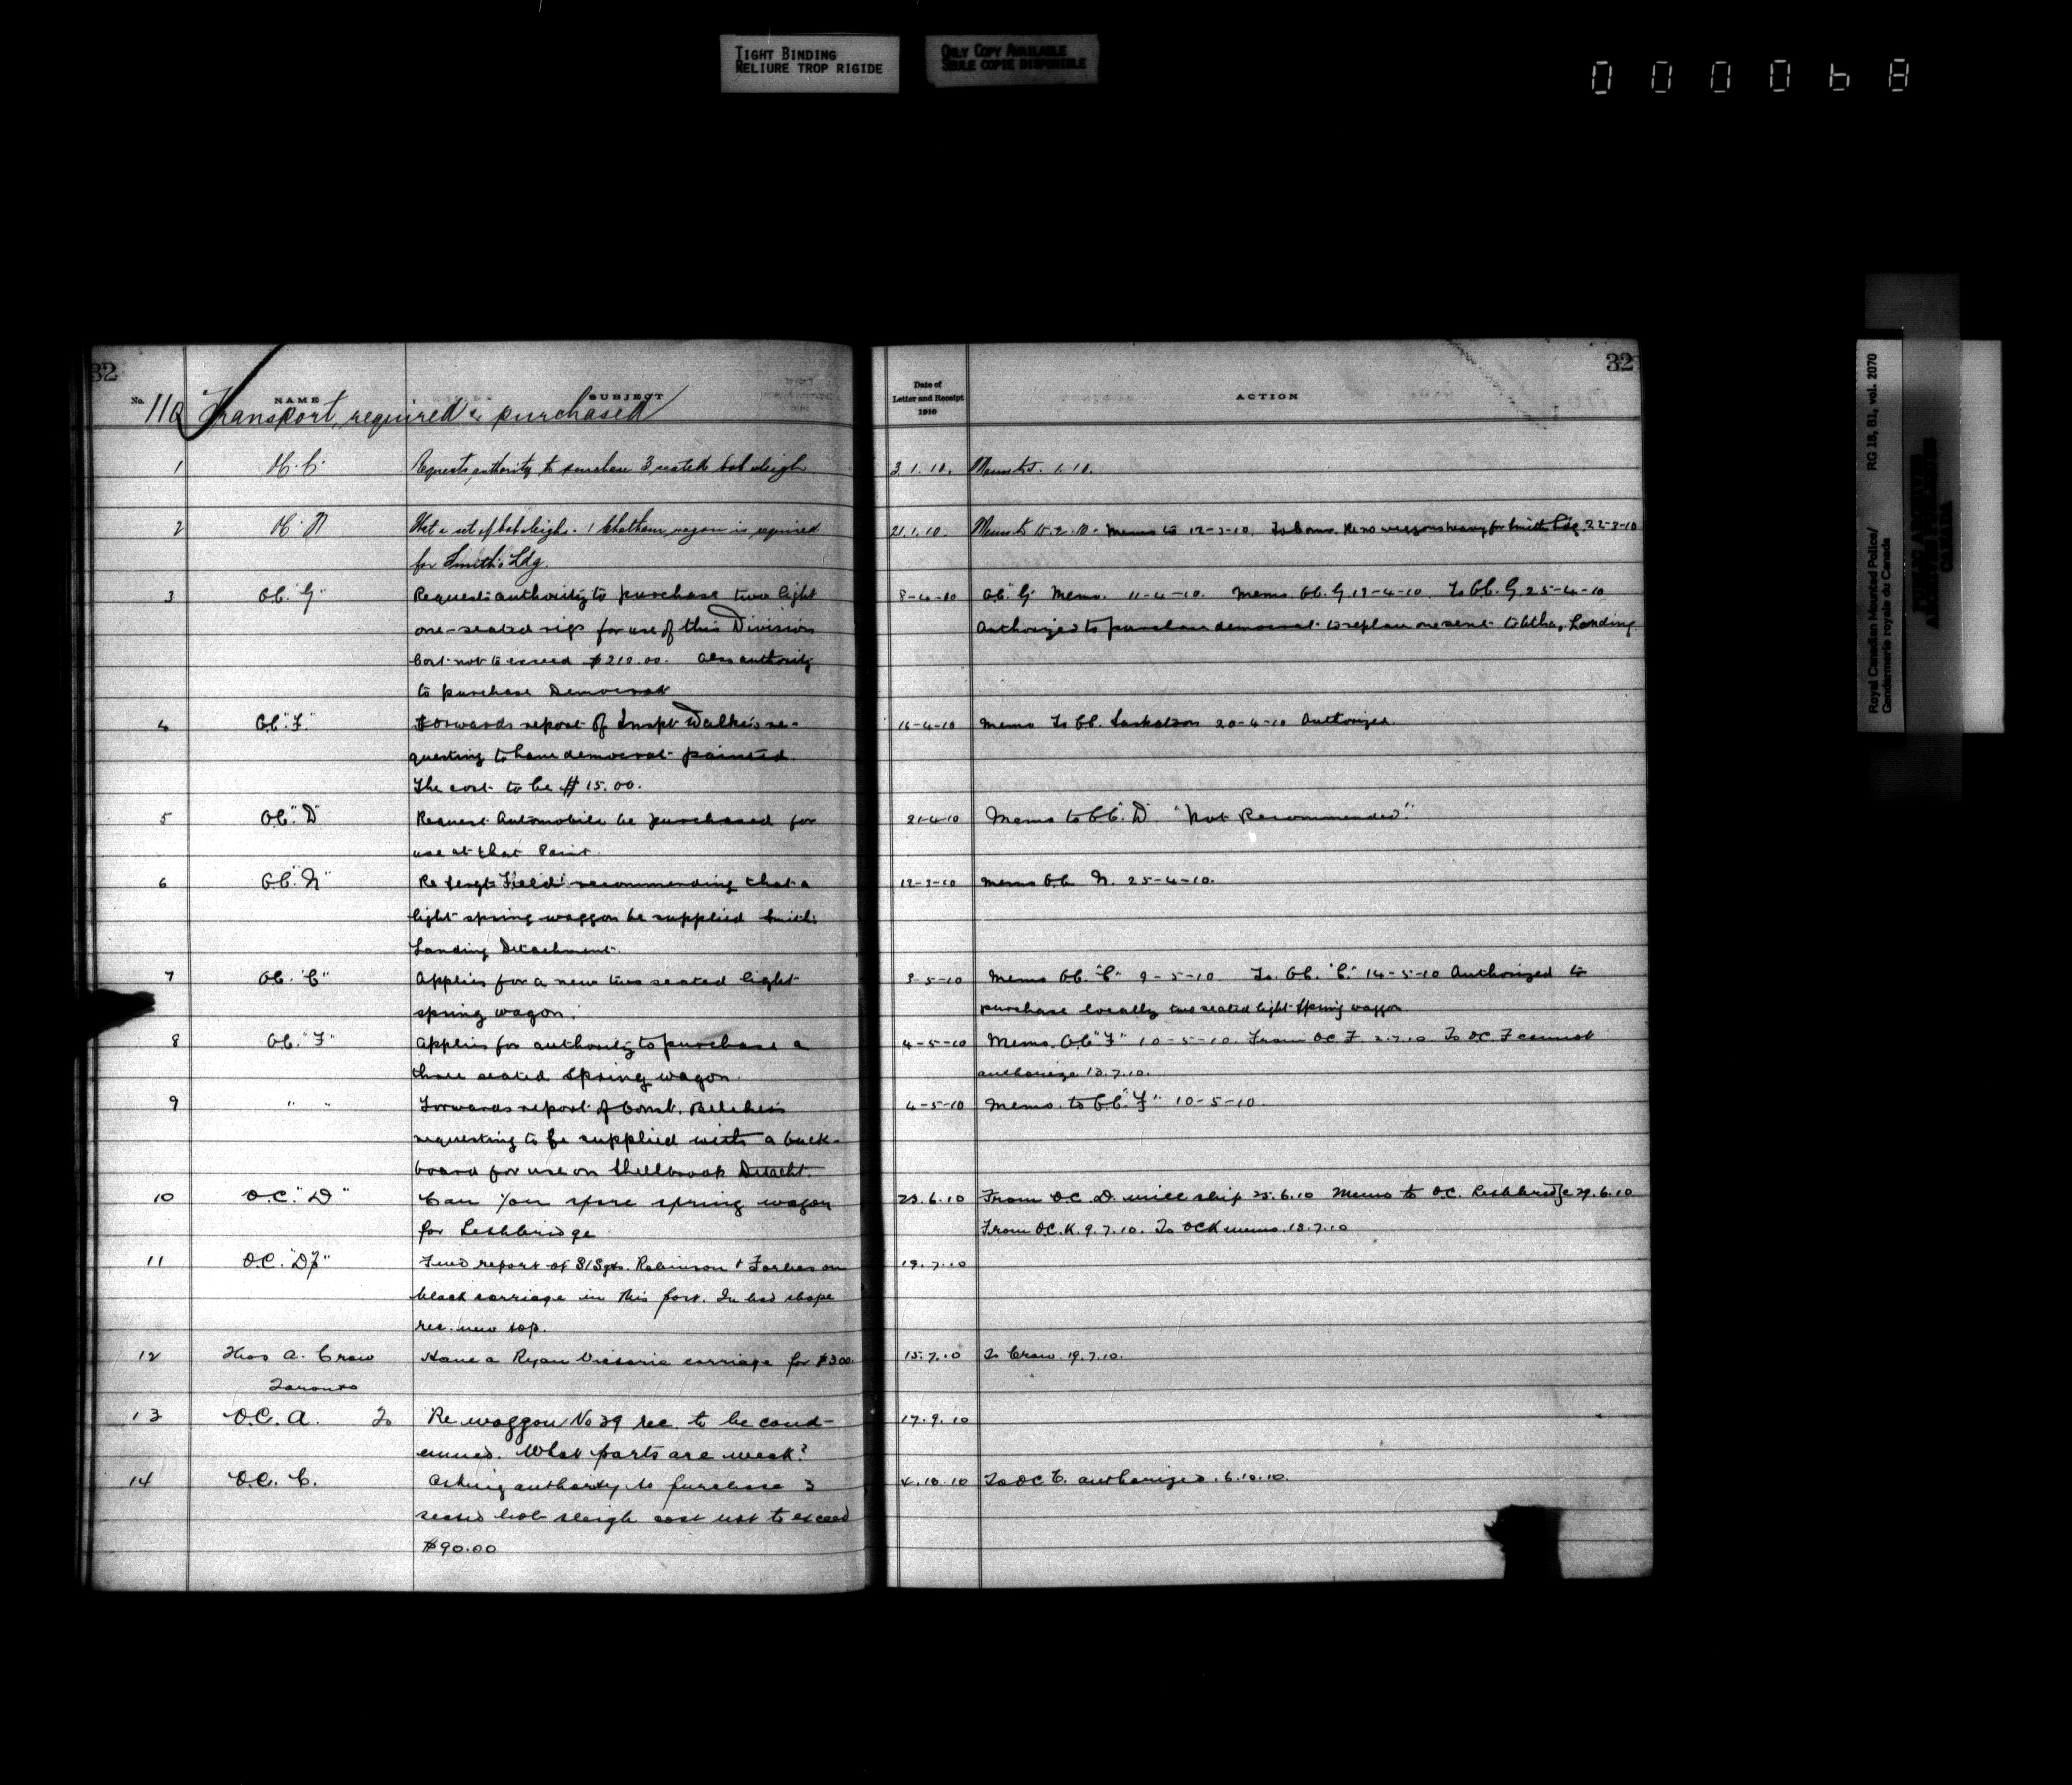 TIGHT BINDING
RELIURE TROP RIGIDE
ONLY COPY AVAILABLE
SEULE COPIE DISPONIBLE
000068
32
No. NAME SUBJECT
110 Transport, required & purchased
1 Requests authority to purchase 3 seated bob sleigh.
2 That a set of bobsleighs. 1 Chatham wagon is required
for Smith's Ldg.
3 O.C. "G" Requests authority to purchase two light
one-seated rigs for use of this Division
Cost not to exceed $210.00. Also authority
to purchase Democrat
4 O.C. "F" Forwards report of Inspt Walke's re-
questing to have democrat painted.
The cost to be $15.00.
5 O.C. "D" Request Automobile be purchased for
use at that Point.
6 O.C. "N" Re Sergt Field recommending that a
light spring waggon be supplied Smith's
Landing Detachment.
7 O.C. "C" Applies for a new two seated light
spring wagon.
8 O.C. "F" Applies for authority to purchase a
three seated spring wagon.
9 " " Forwards report of Const. Belcher's
requesting to be supplied with a buck-
board for use on Shellbrook Detacht.
10 O.C. "D" Can you spare spring wagon
for Lethbridge
11 O.C. report of S/Sgts. Robinson & Forbes on
black carriage in this post. In bad shape
rec. new top.
12 Thos A. Crow Have a Ryan Victoria carriage for $300.
Toronto
13 O.C. A. To Re waggon No 39 rec. to be cond-
emned. What parts are weak?
14 O.C. C. Asking authority to purchase 3
seated bob sleigh cost not to exceed
$90.00
32
Date of
Letter and Receipt
1910
ACTION
3.1.10. Memo to 1.10.
21.1.10. Memo to 15.2.10. Memo to 12-3-10. Re no waggons heavy for Smith Ldg. 22-3-10
8-4-10 O.C. "G" Memo. 11-4-10. Memo O.C. G 19-4-10. To O.C. G 25-4-10
Authorized to purchase democrat to replace one sent to Atha, Landing.
16-4-10 Memo To O.C. Saskatoon 20-4-10 Authorized.
21-4-10 Memo to O.C. "D" "Not Recommended."
12-3-10 Memo O.C. N. 25-4-10.
3-5-10 Memo O.C. "C" 9-5-10 To O.C. "C" 14-5-10 Authorized to
purchase locally two seated light spring waggon
4-5-10 Memo. O.C. "F" 10-5-10. From OC F. 2.7.10 To OC F cannot
authorize 13.7.10.
4-5-10 Memo. to O.C. "F" 10-5-10.
23.6.10 From O.C. D. will ship 25.6.10 Memo to OC. Lethbridge 29.6.10
From O.C. K. 9.7.10. To OCK memo 13.7.10
19.7.10
15.7.10 To Crow. 19.7.10.
17.9.10
4.10.10 To OC C. authorized. 6.10.10.
Royal Canadian Mounted Police/
Gendarmerie royale du Canada
RG 18, B1, vol. 2070
PUBLIC ARCHIVES
ARCHIVES PUBLIQUES
CANADA